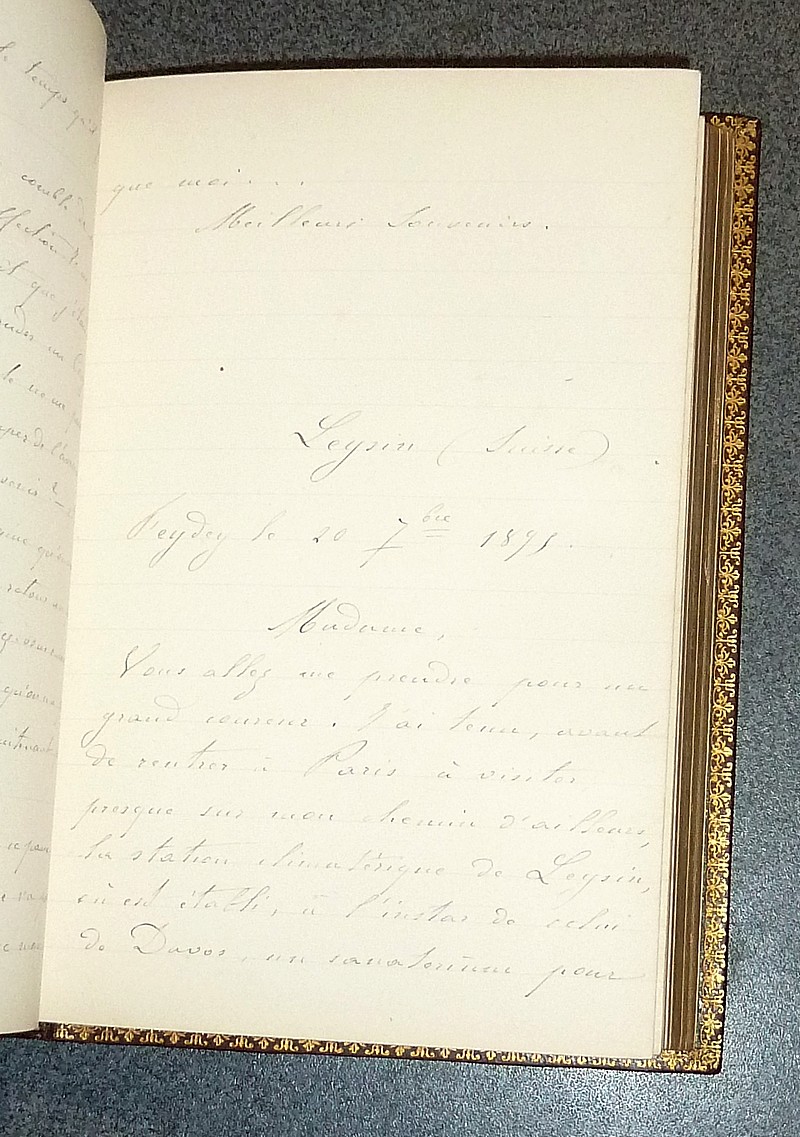 le temps qu'il
comble
que j'étais
retour
qu'on
maintenant
que moi...
Meilleurs Souvenirs.
Leysin (Suisse).
Feydey le 20 7bre 1895.
Madame,
Vous allez me prendre pour un
grand coureur. J'ai tenu, avant
de rentrer à Paris à visiter
presque sur mon chemin d'ailleurs,
la station climatérique de Leysin,
où est établi, à l'instar de celui
de Davos, un sanatorium pour